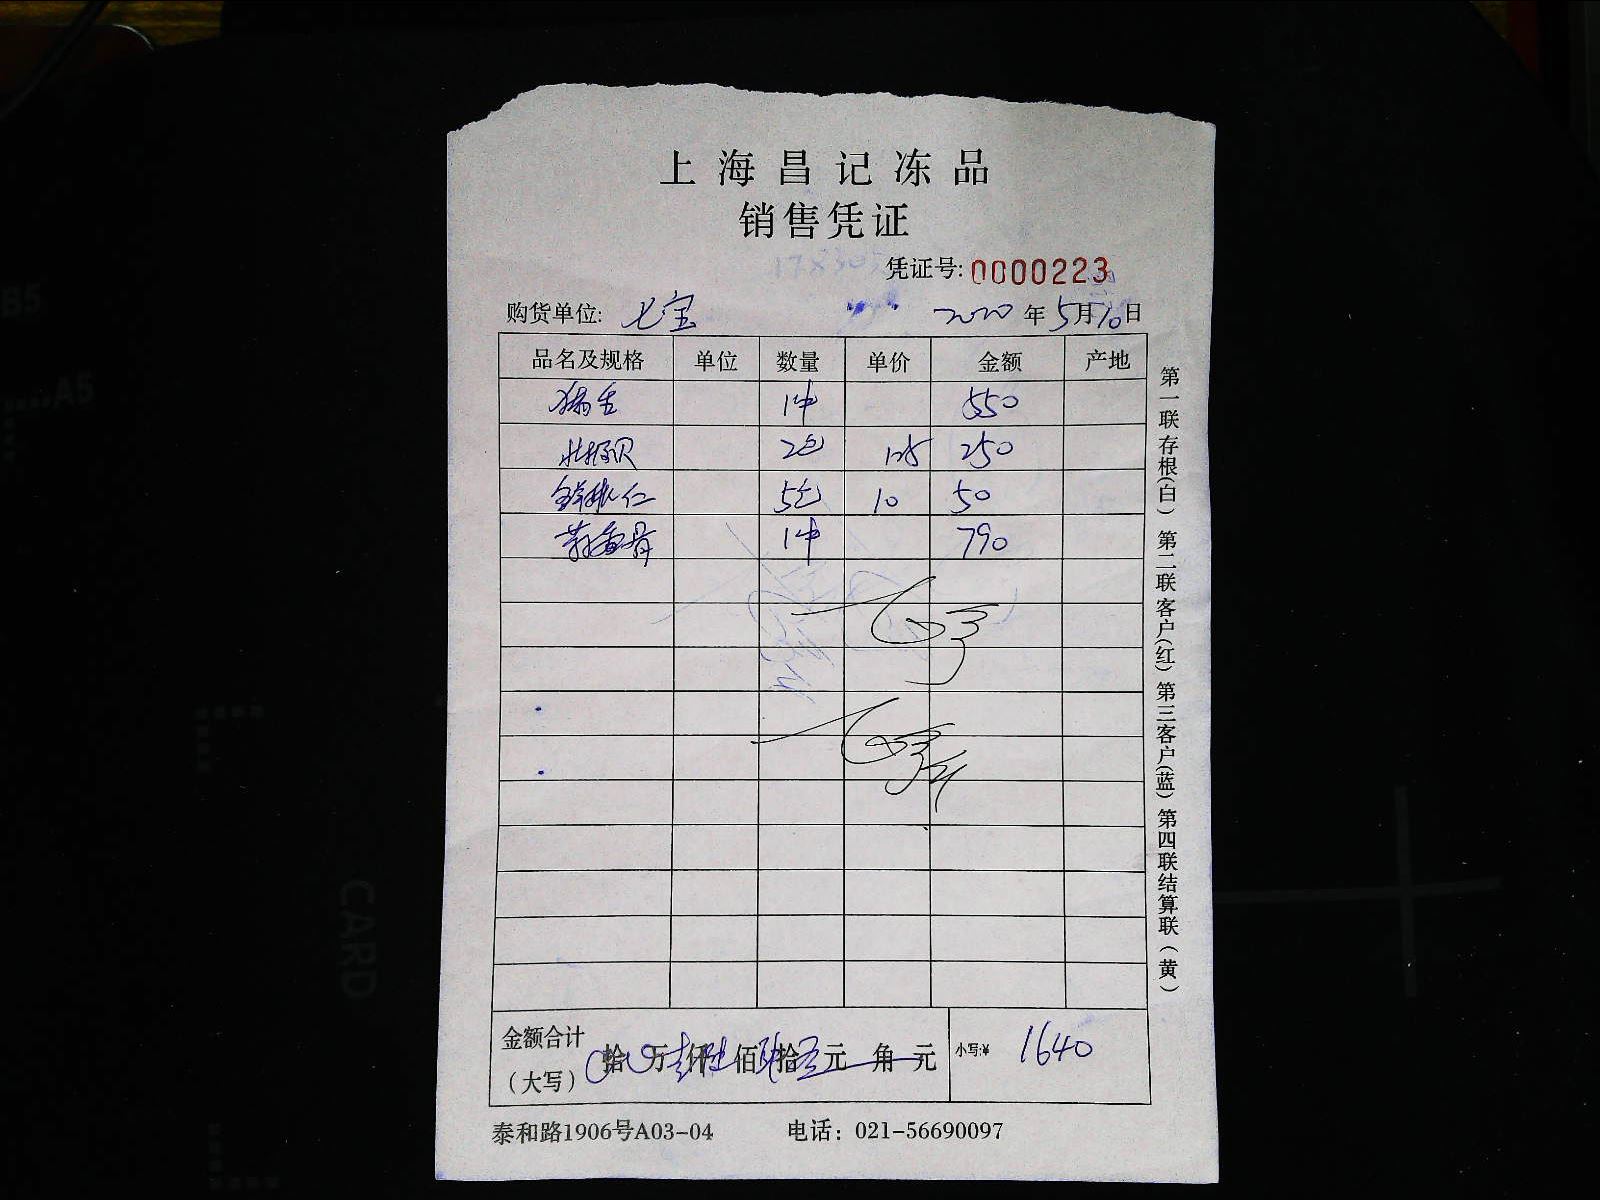 上海昌记冻品
销售凭证
凭证号:0000223
购货单位: 七宝 2020年5月10日
品名及规格 单位 数量 单价 金额 产地
猪舌 1件 550
北极贝 2包 125 250
仁 5包 10 50
骨 1件 790
金额合计（大写） 拾 万 仟 佰 拾 元 角 元 小写:¥ 1640
泰和路1906号A03-04 电话：021-56690097
第一联存根(白) 第二联客户(红) 第三客户(蓝) 第四联结算联（黄）
B5
A5
CARD